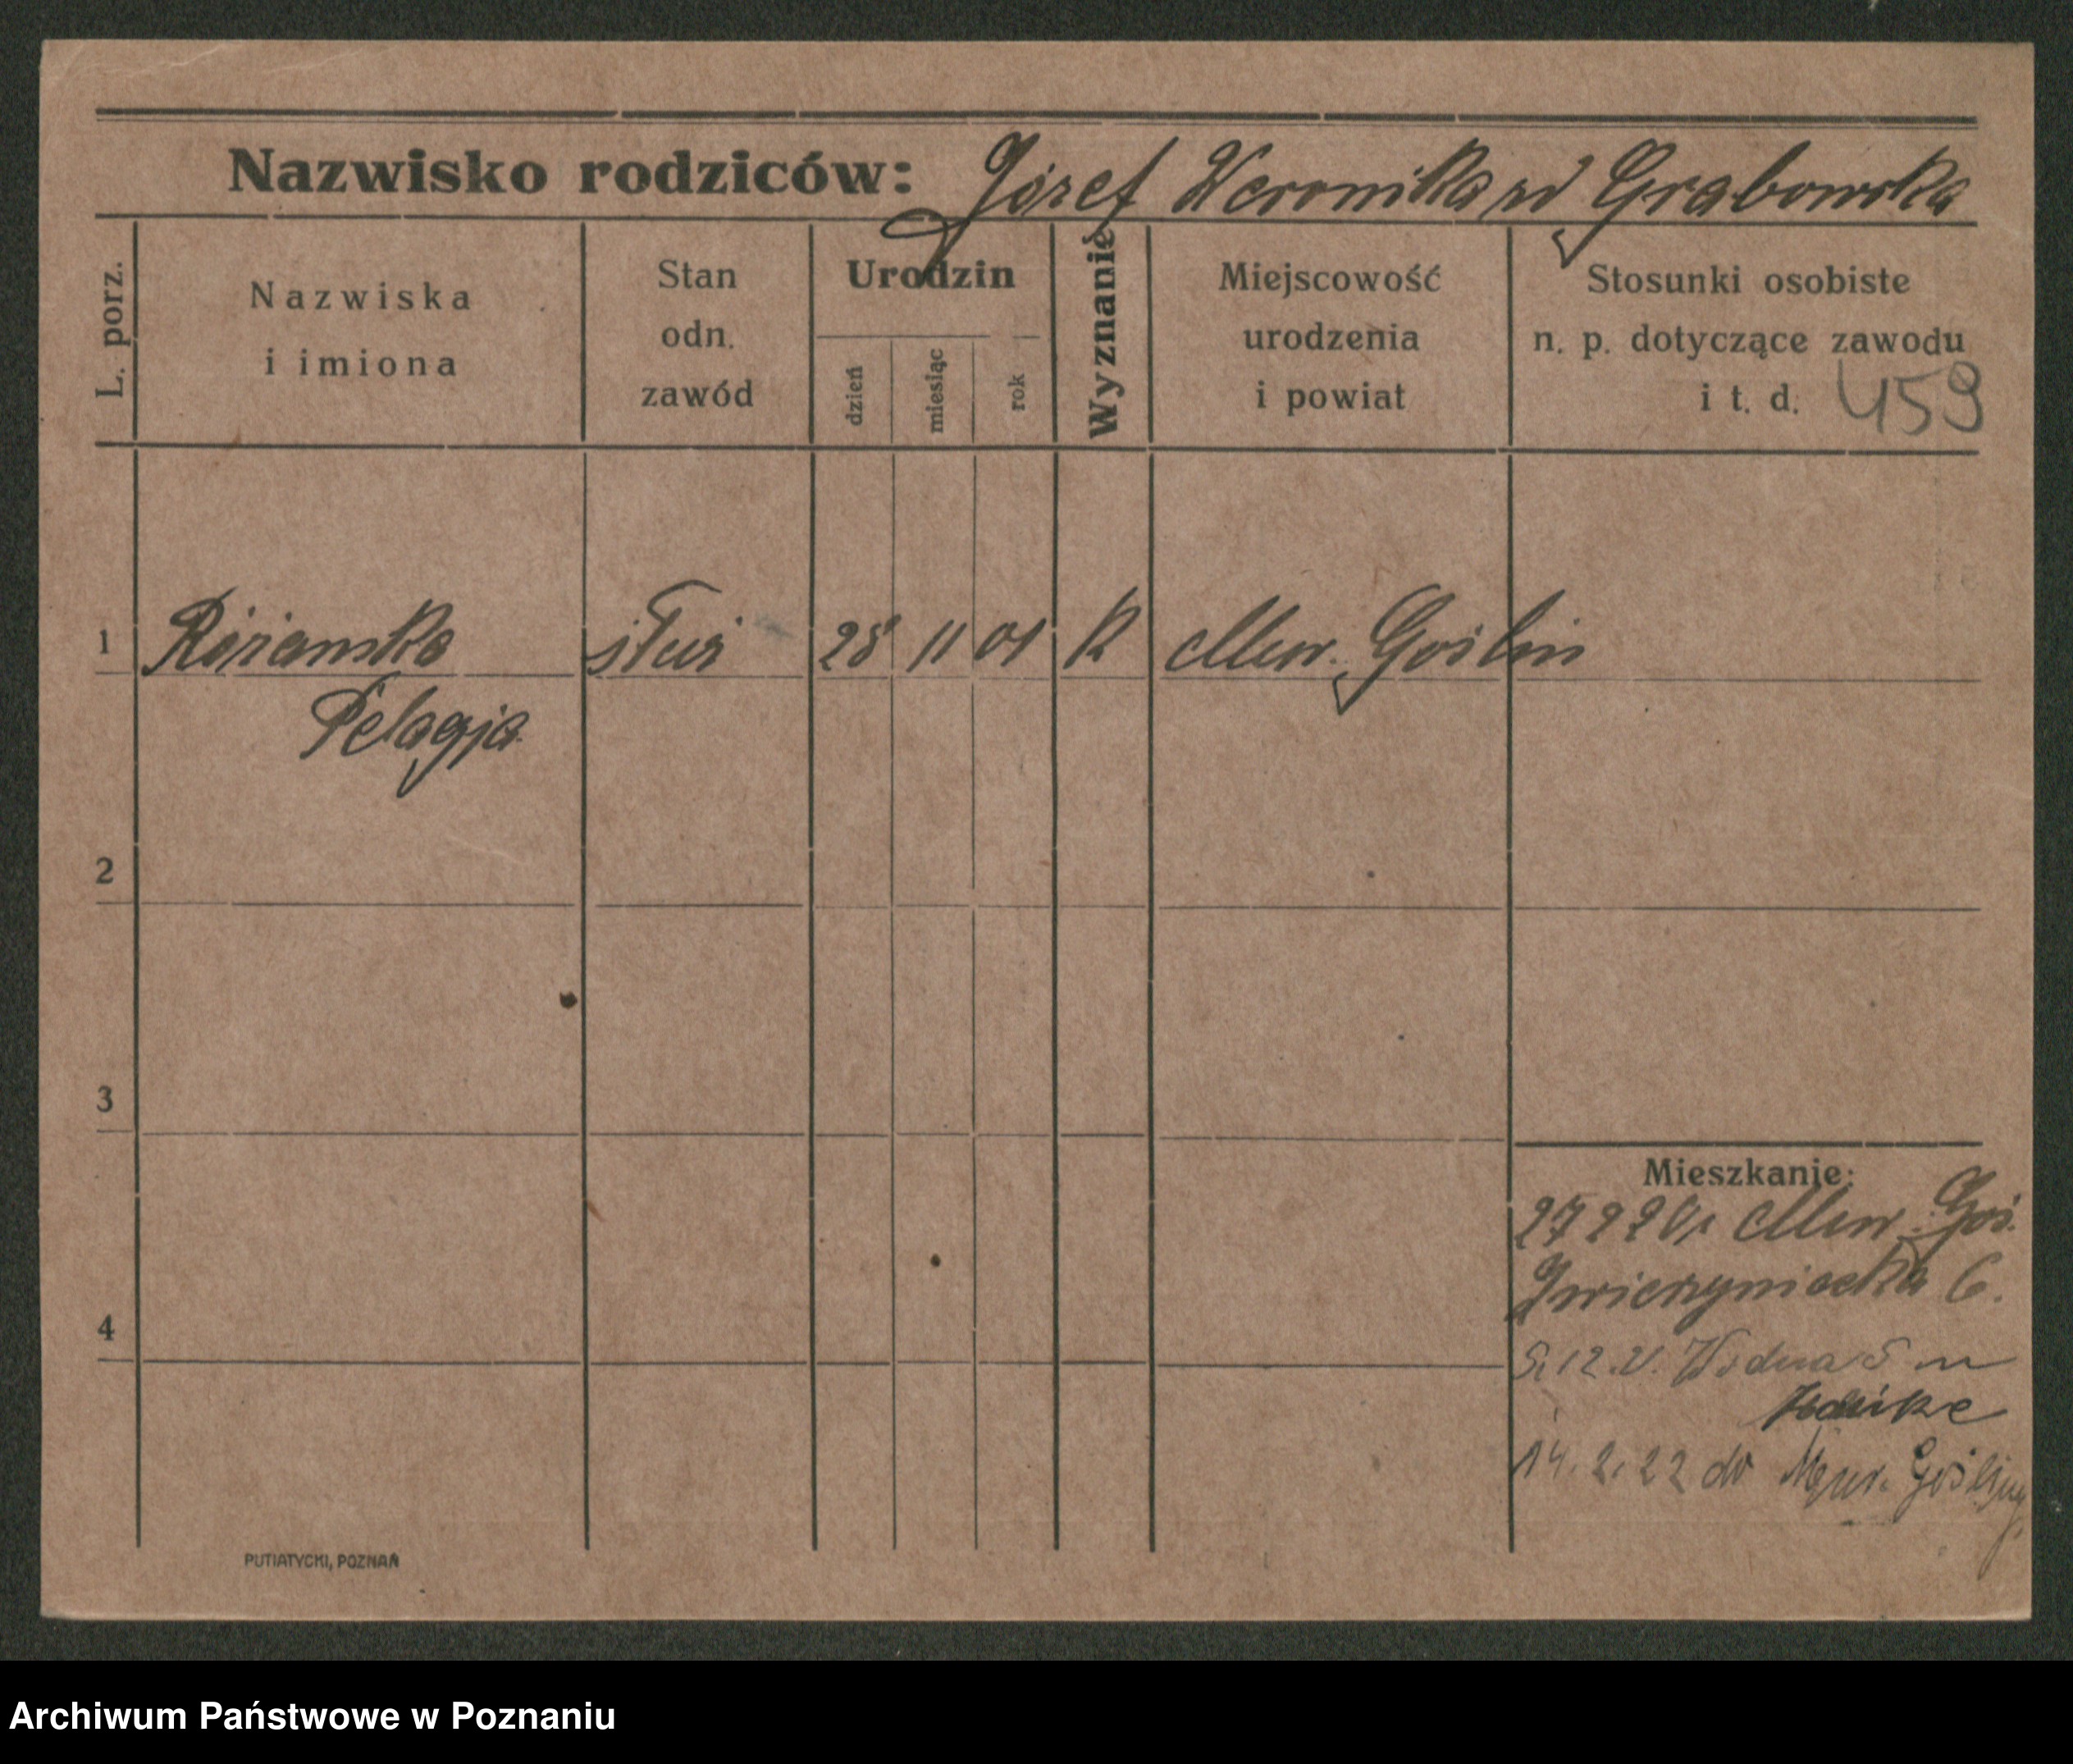 Nazwisko rodziców: Józef Weronika zd Grabowska
L. porz.
Nazwiska
i imiona
Stan
odn.
zawód
Urodzin
dzień
miesiąc
rok
Wyznanie
Miejscowość
urodzenia
i powiat
Stosunki osobiste
n. p. dotyczące zawodu
i t. d. 459
1 Różańska służ 28 11 01 K Mur. Goślin
Pelagja
2
3
4
Mieszkanie:
Mur. Goś.
Zwierzyniecka 6.
Wodna 5
14.2.22 do Mur. Gośliny
PUTIATYCKI, POZNAŃ
Archiwum Państwowe w Poznaniu